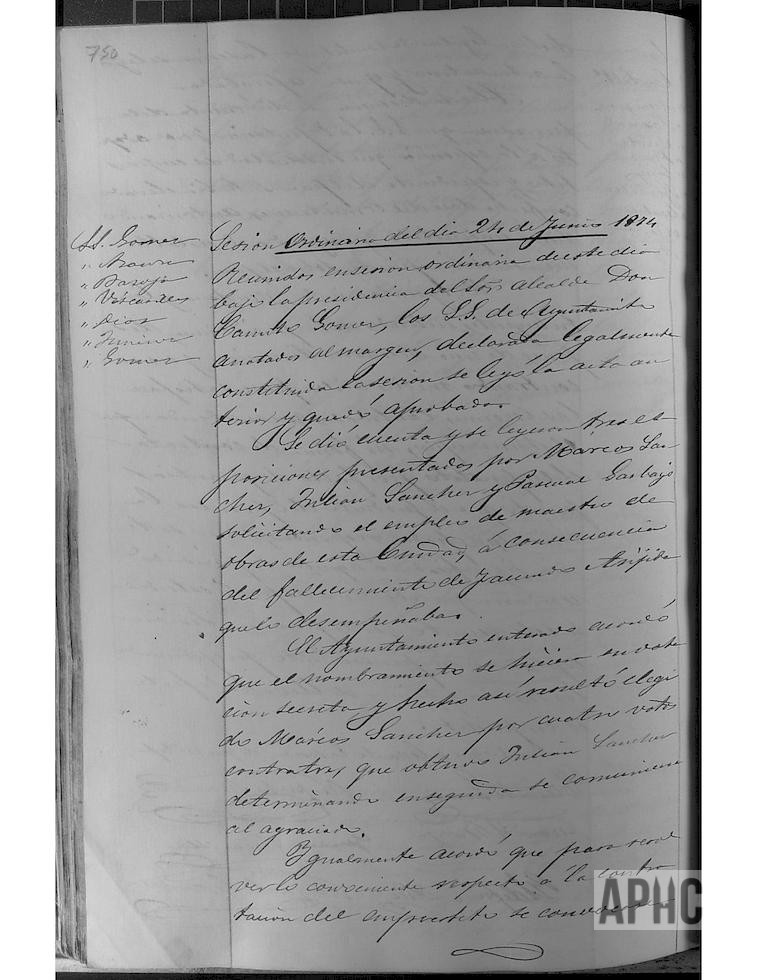 750
SS. Gomez
" Baroja
" Dios
" Gomez
Sesion Ordinaria del dia 24 de Junio 1874
Reunidos en sesion ordinaria de este dia
bajo la presidencia del Sor. Alcalde Don
Camilo Gomez, los S.S. de Ayuntamiento
anotados al margen, declarada legalmente
constituida la sesion se leyó la acta an
terior y quedó aprobada.
Se dió cuenta y se leyeron tres es
posiciones presentadas por Marcos San
chez, Julian Sanchez y Pascual Garbajo
solicitando el empleo de maestro de
obras de esta Ciudad, á consecuencia
del fallecimiento de Facundo
que lo desempeñaba.
El Ayuntamiento enterado acordó
que el nombramiento se hiciera en vota
cion secreta y hecho asi resultó elegi
do Marcos Sanchez por cuatro votos
contra tres que obtuvo Julian Sanchez
determinando enseguida se comunicase
al agraciado.
Ygualmente acordó que para resol
ver lo conveniente respecto á la contra
tacion del empréstito se
APHC